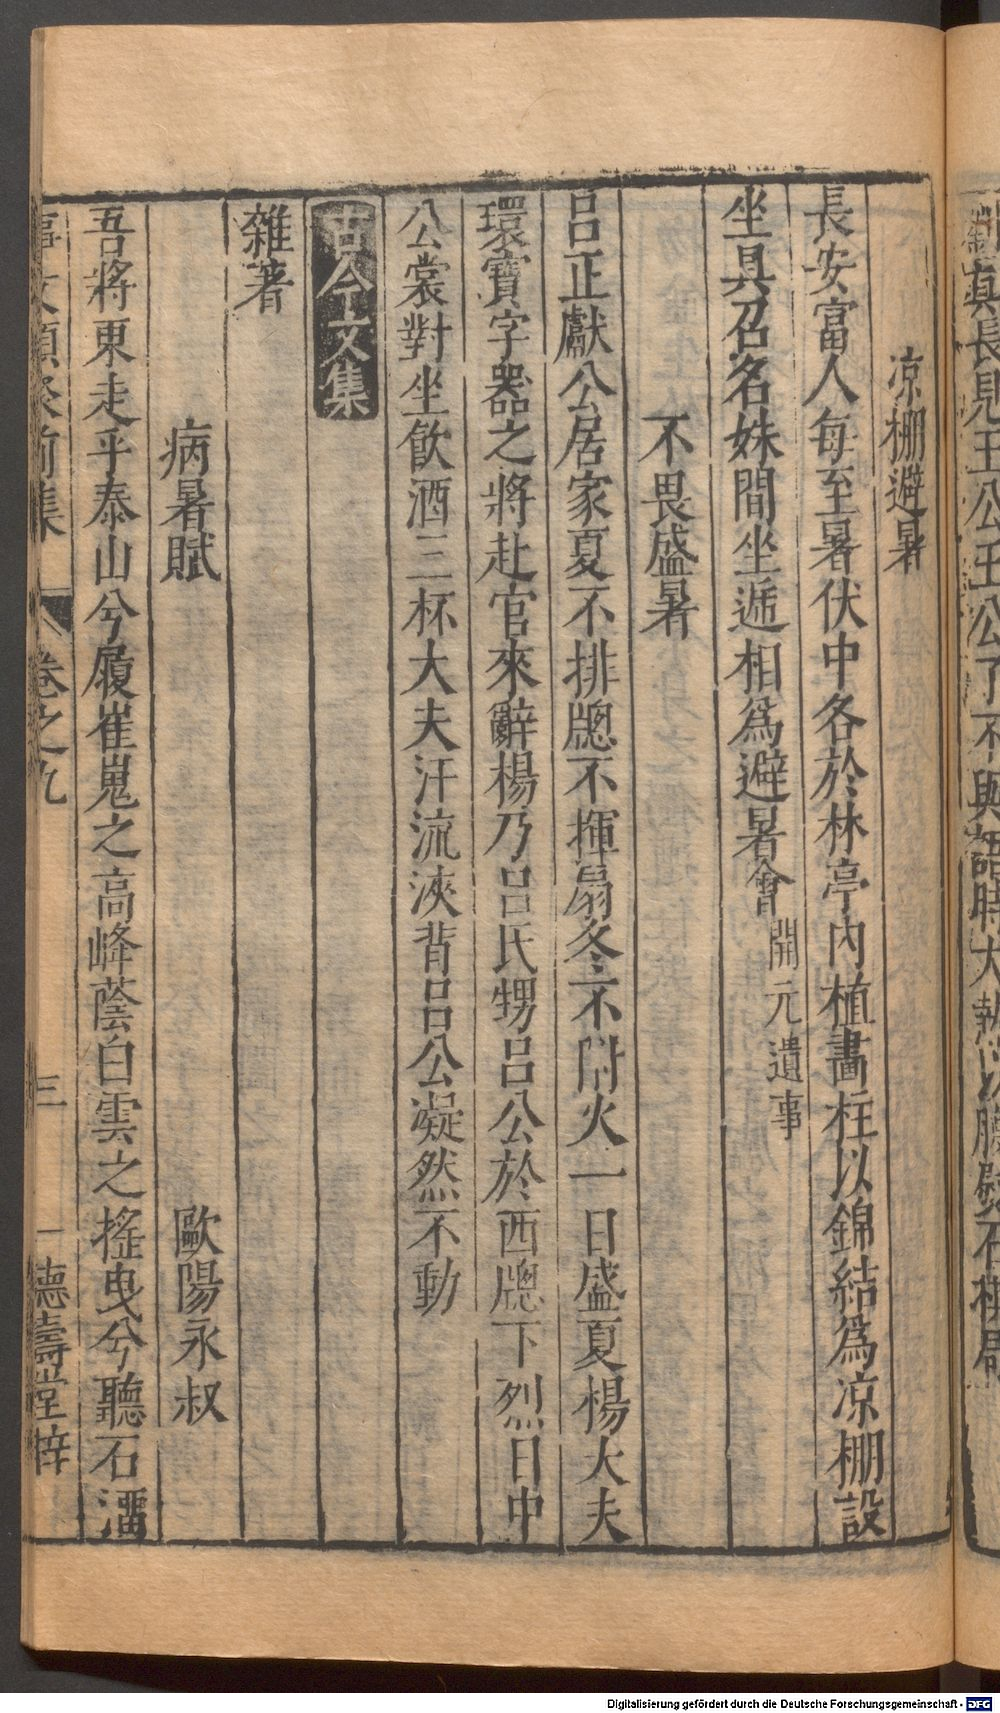 凉棚避暑
長安富人每至暑伏中各於林亭內植畫柱以錦結爲凉棚設
坐具召名姝間坐遞相爲避暑會 開元遺事
不畏盛暑
呂正獻公居家夏不排牕不揮扇冬不附火一日盛夏楊大夫
環寶字器之將赴官來辭楊乃呂氏甥呂公於西牕下烈日中
公裳對坐飲酒三杯大夫汗流浹背呂公凝然不動
古今文集
雜著
病暑賦 歐陽永叔
吾將東走乎泰山兮履崔嵬之高峰蔭白雲之搖曳兮聽石溜
事文類聚前集 卷之九 三 德壽堂梓
真長見王公王公了不與語時大熱以腹熨石棋局
Digitalisierung gefördert durch die Deutsche Forschungsgemeinschaft - DFG